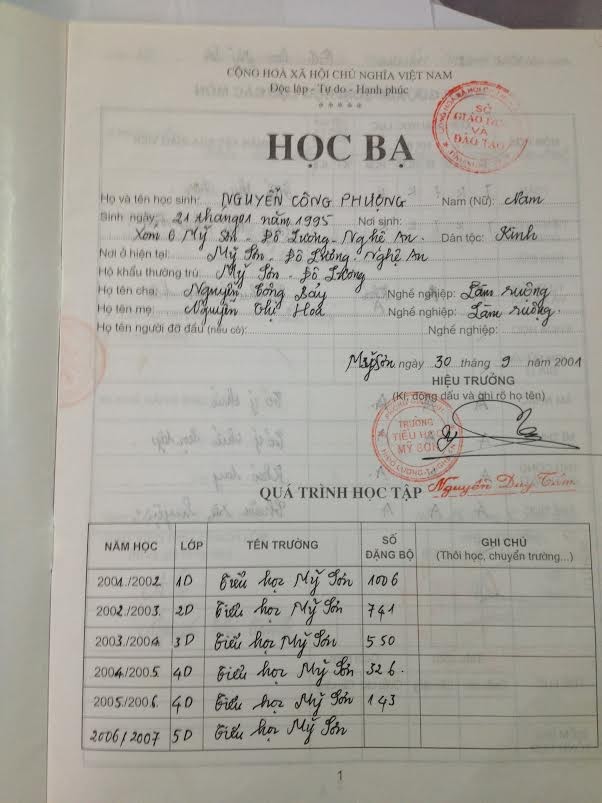 CỘNG HOÀ XÃ HỘI CHỦ NGHĨA VIỆT NAM
Độc lập - Tự do - Hạnh phúc
*****
SỞ
GIÁO DỤC
VÀ
ĐÀO TẠO
HỌC BẠ
Họ và tên học sinh: NGUYỄN CÔNG PHƯỢNG Nam (Nữ): Nam
Sinh ngày: 21 tháng 01 năm 1995 Nơi sinh:
Xóm 6 Mỹ Sơn - Đô Lương - Nghệ An. Dân tộc: Kinh
Nơi ở hiện tại: Mỹ Sơn - Đô Lương - Nghệ An
Hộ khẩu thường trú: Mỹ Sơn - Đô Lương
Họ tên cha: Nguyễn Công Bảy Nghề nghiệp: Làm ruộng
Họ tên mẹ: Nguyễn Thị Hoa Nghề nghiệp: Làm ruộng.
Họ tên người đỡ đầu (nếu có): Nghề nghiệp:
Mỹ Sơn ngày 30 tháng 9 năm 2001
HIỆU TRƯỞNG
(Kí, đóng dấu và ghi rõ họ tên)
TRƯỜNG
TIỂU HỌC
MỸ SƠN
Nguyễn Duy Tám
QUÁ TRÌNH HỌC TẬP
NĂM HỌC LỚP TÊN TRƯỜNG SỐ ĐĂNG BỘ GHI CHÚ
(Thôi học, chuyển trường...)
2001./2002 1D Tiểu học Mỹ Sơn 1006
2002./2003. 2D Tiểu học Mỹ Sơn 741
2003./2004 3D Tiểu học Mỹ Sơn 550
2004./2005. 4D Tiểu học Mỹ Sơn 326.
2005./2006. 4D Tiểu học Mỹ Sơn 143
2006/2007 5D Tiểu học Mỹ Sơn
1